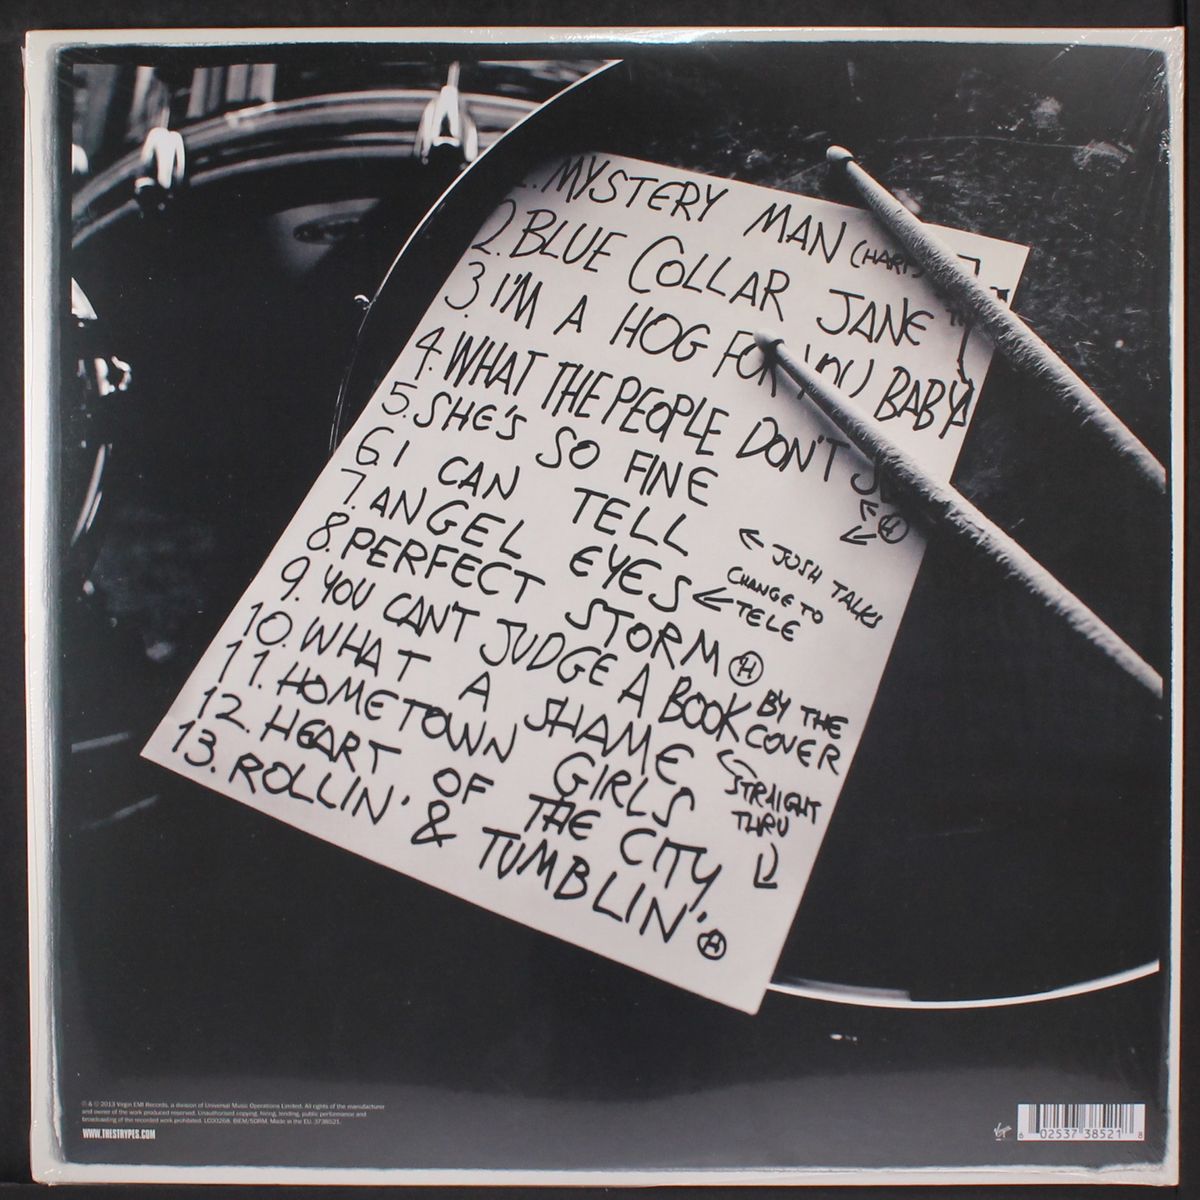 . MYSTERY MAN (HARP)
2. BLUE COLLAR JANE
3. I'M A HOG FOR YOU BABY
4. WHAT THE PEOPLE DON'T
H
5. SHE'S SO FINE
6. I CAN TELL
← JOSH TALKS
7. ANGEL EYES ← CHANGE TO TELE
8. PERFECT STORM H
9. YOU CAN'T JUDGE A BOOK BY THE COVER
10. WHAT A SHAME
STRAIGHT
THRU
11. HOMETOWN GIRLS
12. HEART OF THE CITY
13. ROLLIN' & TUMBLIN' H
℗ & © 2013 Virgin EMI Records, a division of Universal Music Operations Limited. All rights of the manufacturer
and owner of the work produced reserved. Unauthorised copying, hiring, lending, public performance and
broadcasting of the recorded work prohibited. LC00268. BIEM/SDRM. Made in the EU. 3738521.
WWW.THESTRYPES.COM
Virgin
6 02537 38521 8